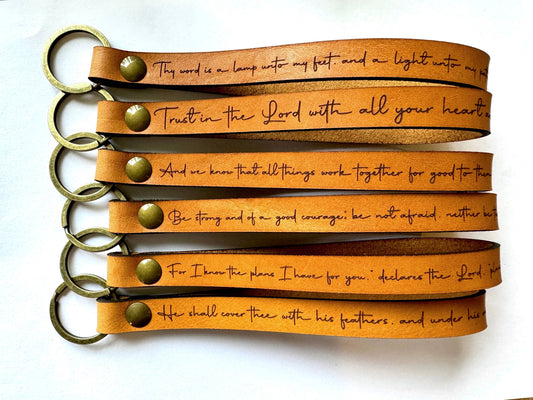 Thy word is a lamp unto my feet, and a light unto my
Trust in the Lord with all your heart
And we know that all things work together for good to them
Be strong and of a good courage; be not afraid, neither be
For I know the plans I have for you," declares the Lord, "
He shall cover thee with his feathers, and under his